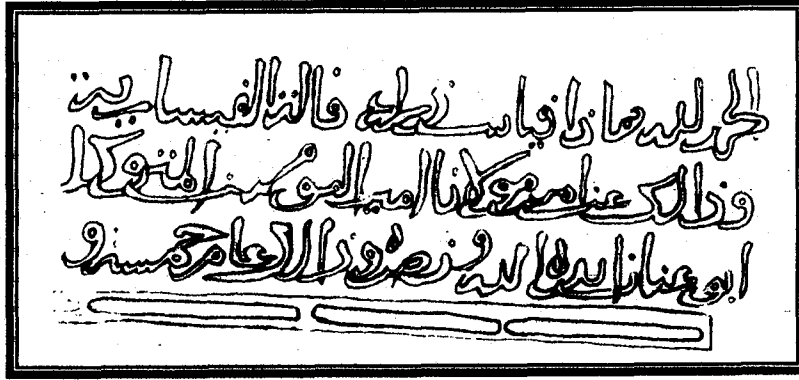 الحمد لله هاذا قياس القيسارية
وذالك عن امر مولانا امير المومنين المتوكل
ابي عنان ايده الله ونصره وذالك عام خمسة و